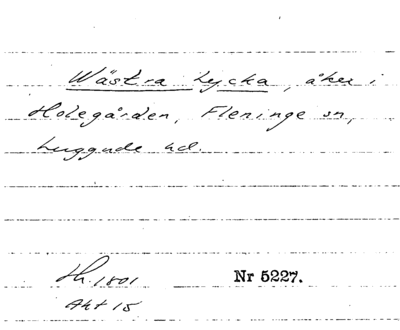 Wästra Lycka, åker i
Holegården, Fleninge sn,
Luggude hd.
Sk. 1801 Nr 5227.
Akt 15